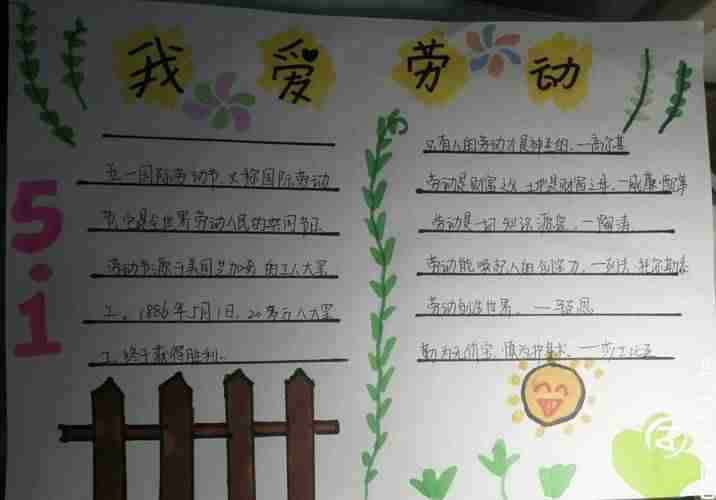 我爱劳动
5.1
五一国际劳动节又称国际劳动
节,它是全世界劳动人民的共同节日。
劳动节源于美国芝加哥的工人大罢
工。1886年5月1日,20多万人大罢
工终于获得胜利。
只有人的劳动才是神圣的。—高尔基
劳动是财富之父土地是财富之母。—威廉·配第
劳动是一切知识源泉。—陶涛
劳动能唤起人的创造力。—列夫·托尔斯泰
劳动创造世界。—马克思
勤为无价宝,慎为护身术。